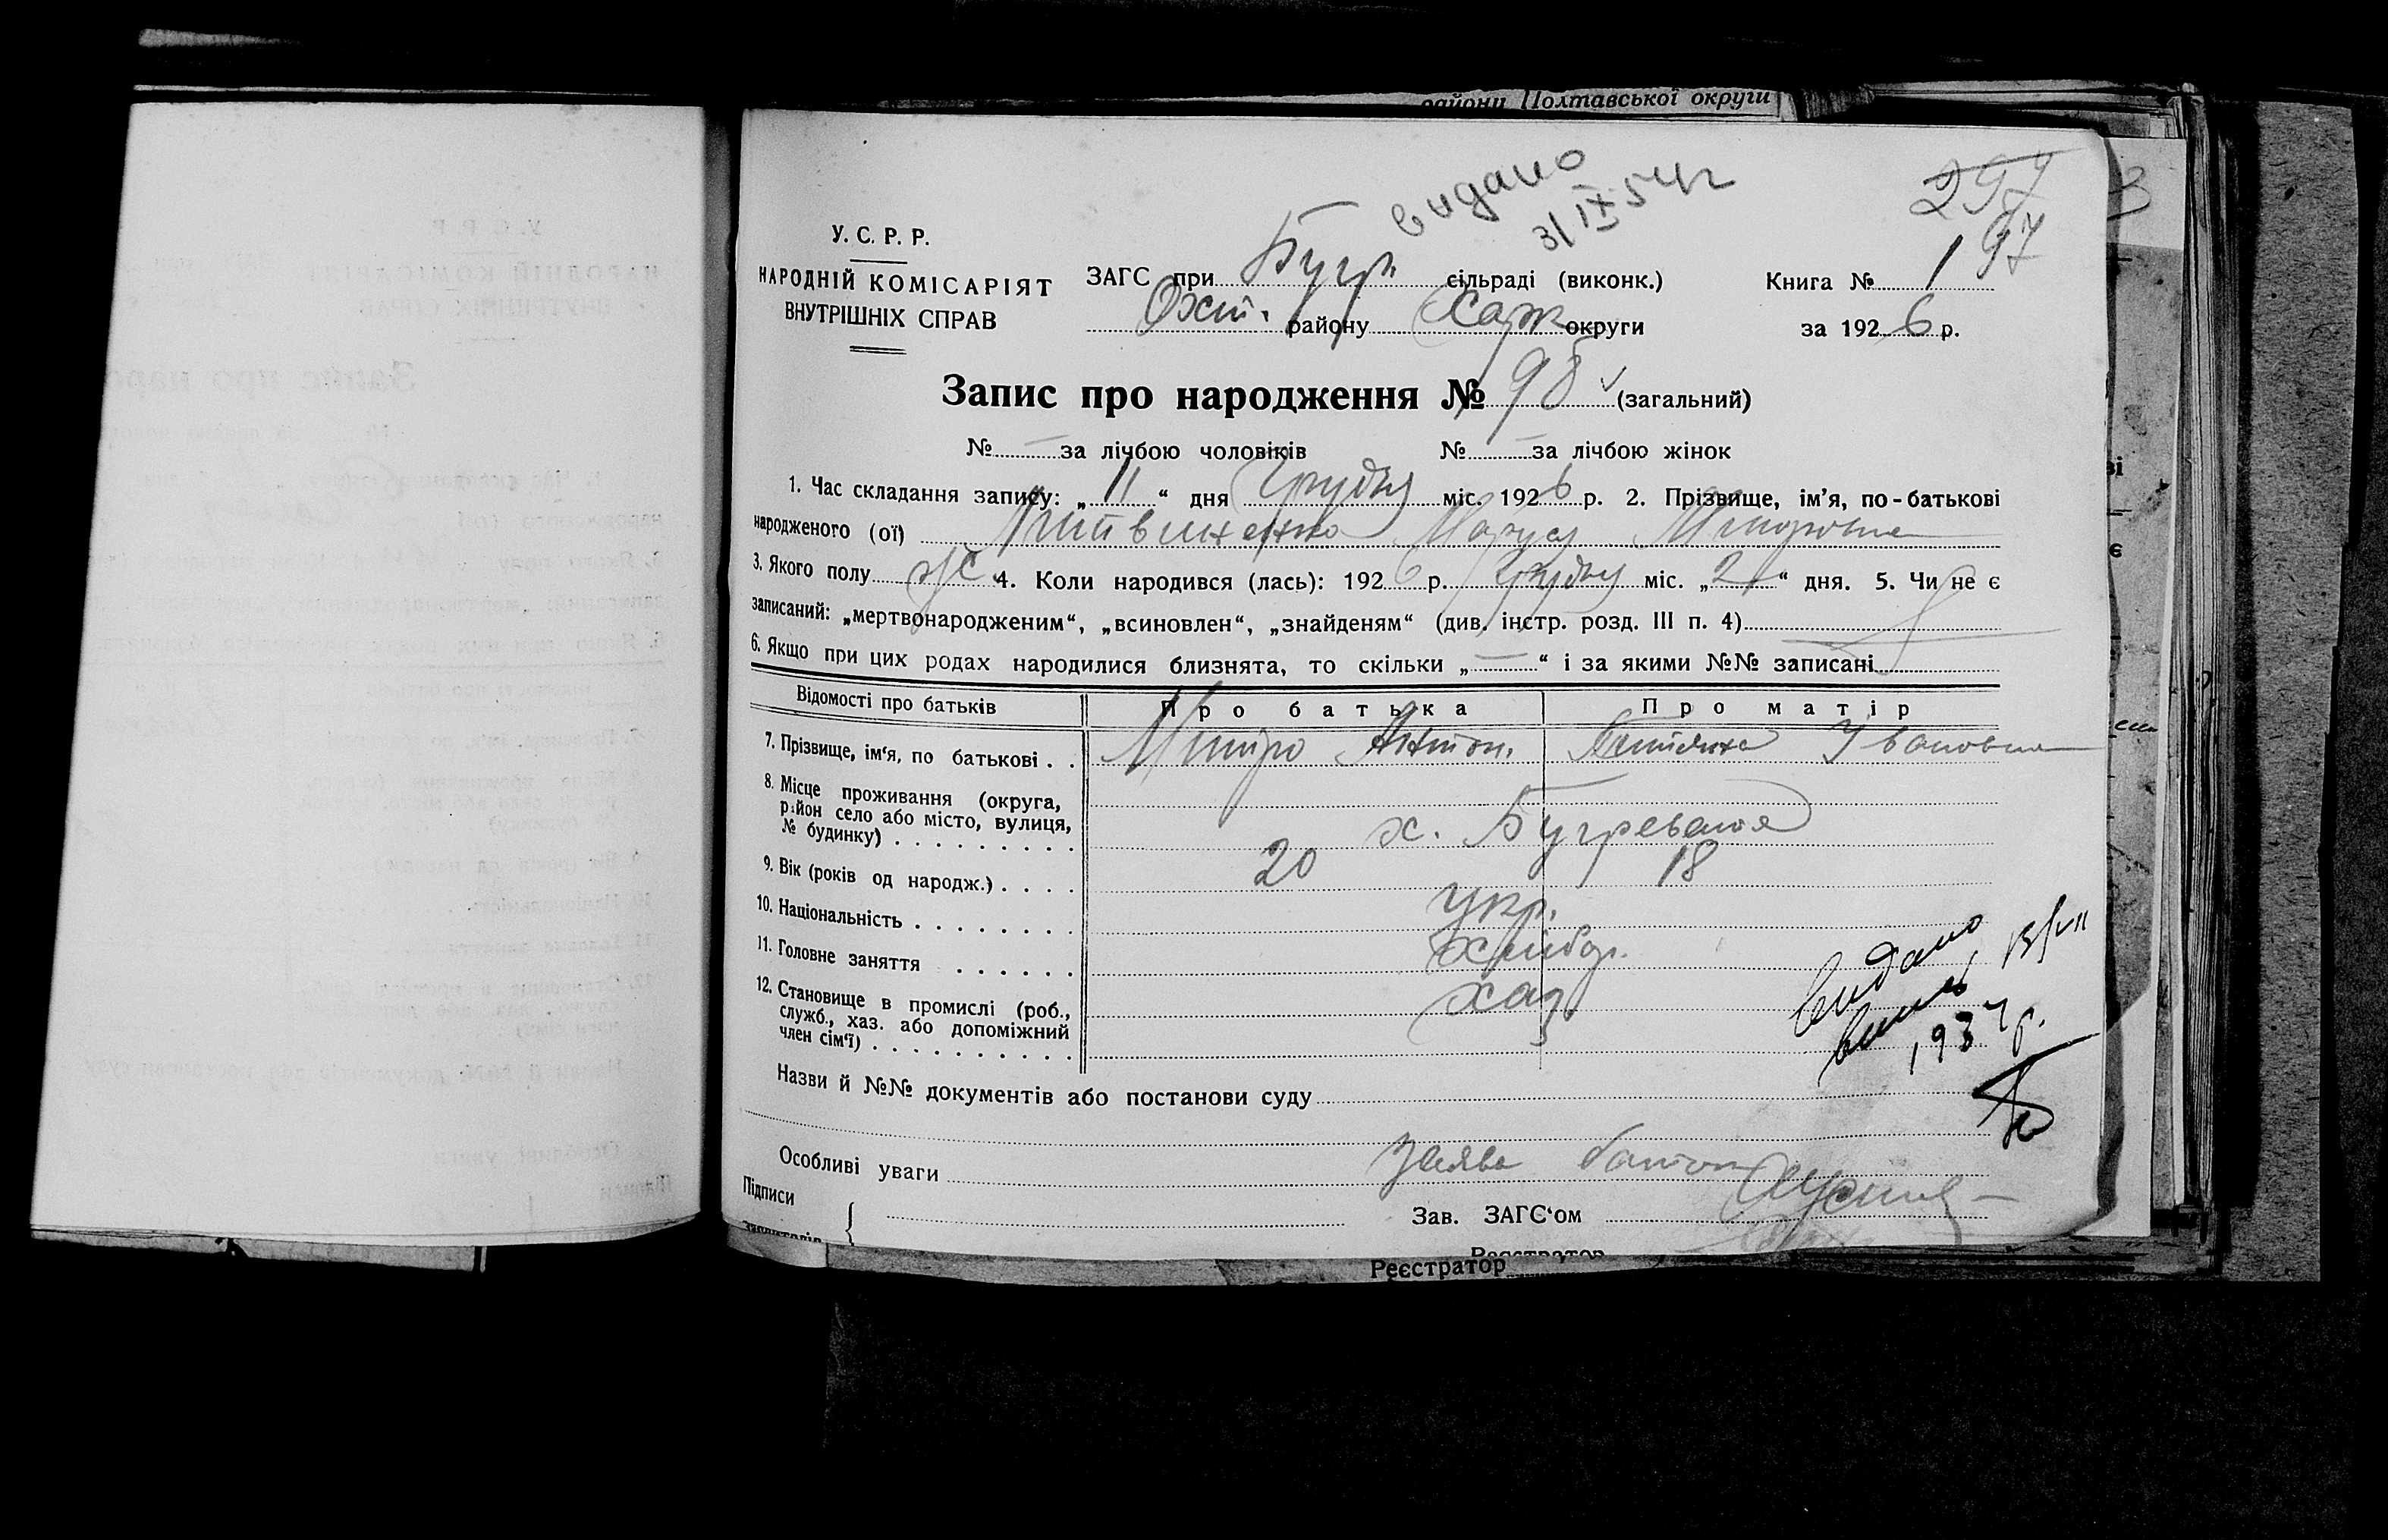 райони Полтавської округи
видано
3/IX 54 г
297
197
У. С. Р. Р.
НАРОДНІЙ КОМІСАРІЯТ
ВНУТРІШНІХ СПРАВ
ЗАГС при Бугр. сільраді (виконк.)
Охт. району Харк округи
Книга № 1
за 1926 р.
Запис про народження № 98 (загальний)
№ — за лічбою чоловіків № — за лічбою жінок
1. Час складання запису: „11“ дня Грудня міс. 1926 р. 2. Прізвище, ім’я, по-батькові
народженого (ої) Литвиненко Маруся Митровна
3. Якого полу ж. 4. Коли народився (лась): 1926 р. Грудня міс. „2“ дня. 5. Чи не є
записаний: „мертвонародженим“, „всиновлен“, „знайденям“ (див. інстр. розд. III п. 4)
6. Якщо при цих родах народилися близнята, то скільки „—“ і за якими №№ записані
Відомості про батьків Про батька Про матір
7. Прізвище, ім‘я, по батькові . . Митро Антон. Івановна
8. Місце проживання (округа,
район село або місто, вулиця,
№ будинку) . . . . . . . . . х. Бугреватя
9. Вік (років од народж.) . . . . 20 18
10. Національність . . . . . . . . укр.
11. Головне заняття . . . . . . хлібор.
12. Становище в промислі (роб.,
служб., хаз. або допоміжний
член сім‘ї) . . . . . . . . . . хаз
видано
1937 р.
Назви й №№ документів або постанови суду
Особливі уваги Заява батька
Підписи
Зав. ЗАГС‘ом
Реєстратор
Реєстратор